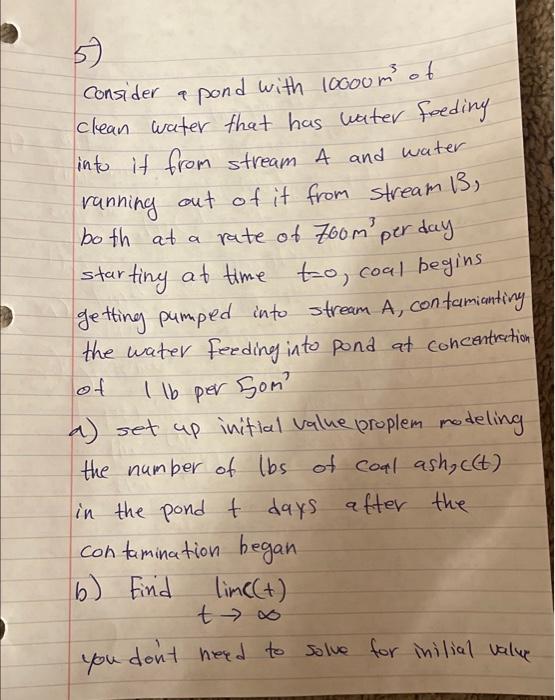 5)
consider a pond with 10000m³ of
clean water that has water feeding
into it from stream A and water
running out of it from stream B,
both at a rate of 700m³ per day
startiny at time t=0, coal begins
getting pumped into stream A, contamianting
the water feeding into pond at concentration
of 1 lb per 50m³
a) set up initial value proplem modeling
the number of lbs of coal ash, c(t)
in the pond t days after the
contamination began
b) Find lim c(t)
t → ∞
you don't need to solve for initial value